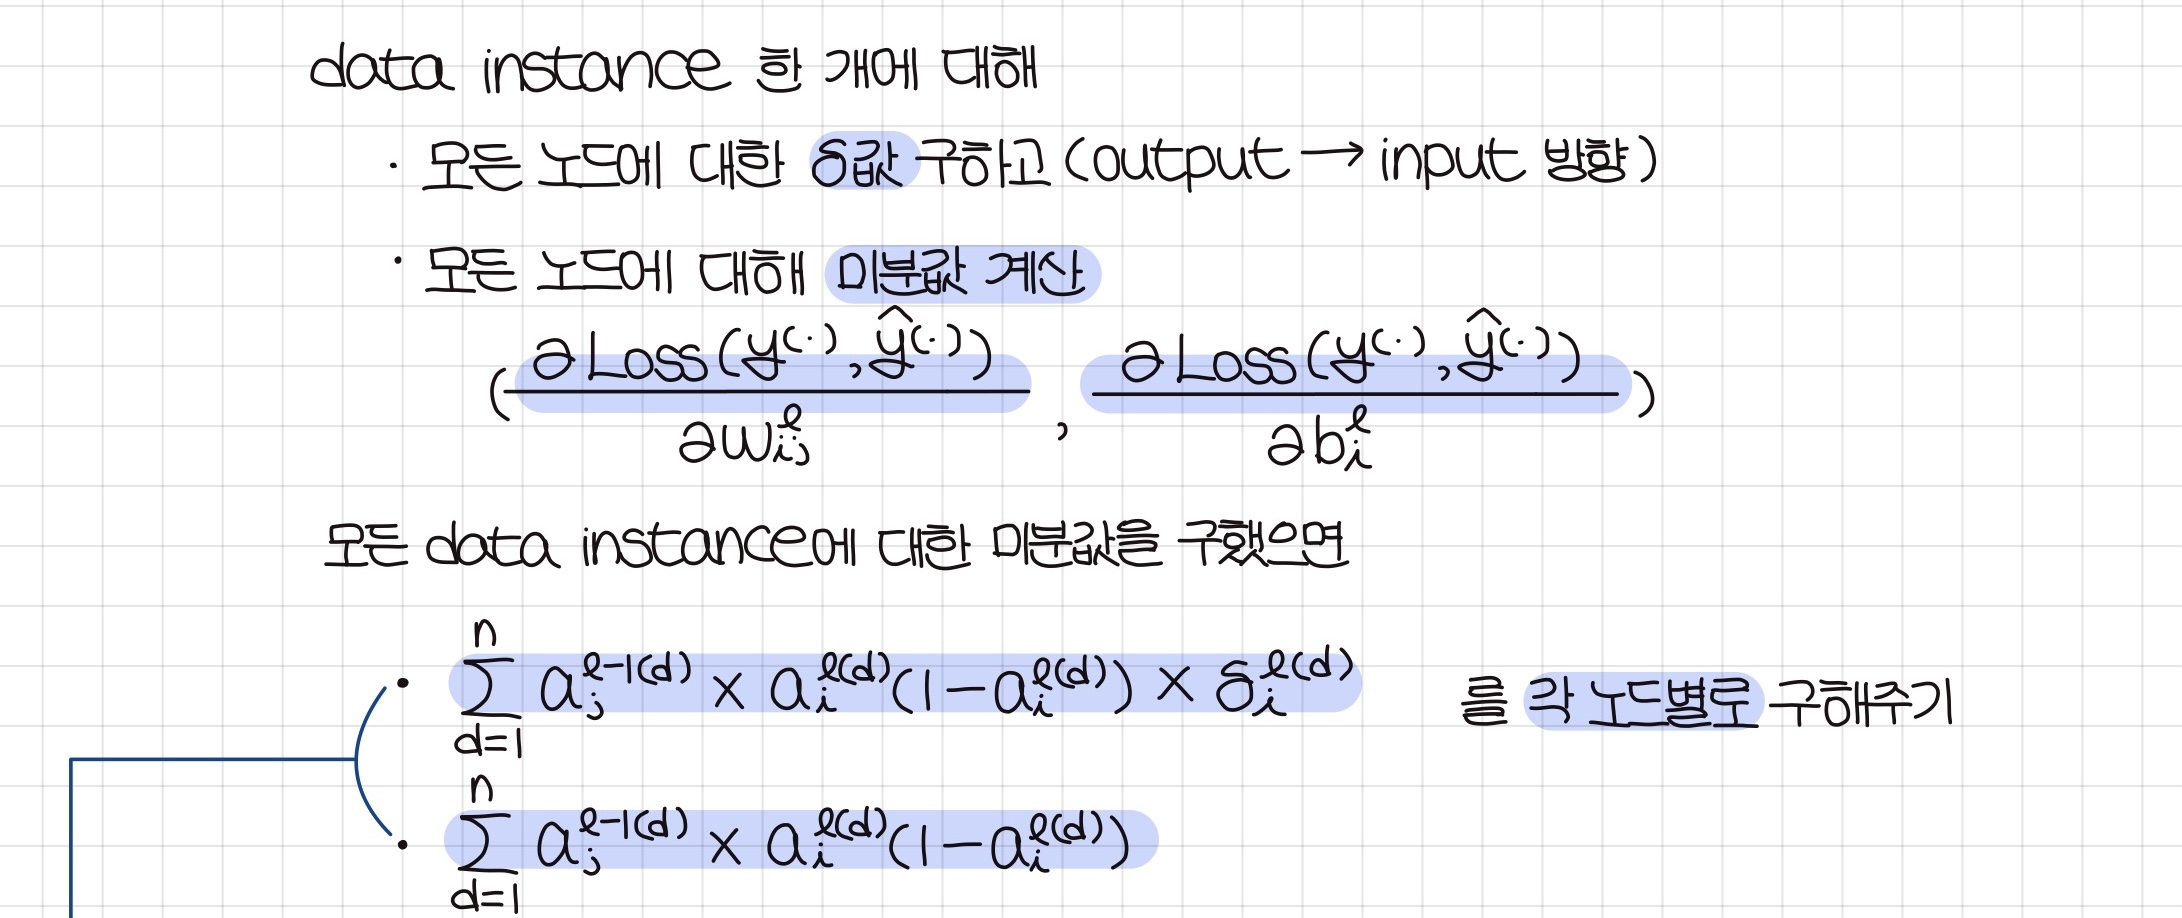 data instance 한 개에 대해
· 모든 노드에 대한 δ값 구하고 (output → input 방향)
· 모든 노드에 대해 미분값 계산
( ∂Loss(y⁽·⁾, ŷ⁽·⁾) / ∂w_{ij}^{ℓ} , ∂Loss(y⁽·⁾, ŷ⁽·⁾) / ∂b_{i}^{ℓ} )
모든 data instance에 대한 미분값을 구했으면
• \sum_{d=1}^{n} a_{j}^{ℓ-1(d)} × a_{i}^{ℓ(d)}(1-a_{i}^{ℓ(d)}) × δ_{i}^{ℓ(d)} 를 각 노드별로 구해주기
• \sum_{d=1}^{n} a_{j}^{ℓ-1(d)} × a_{i}^{ℓ(d)}(1-a_{i}^{ℓ(d)})